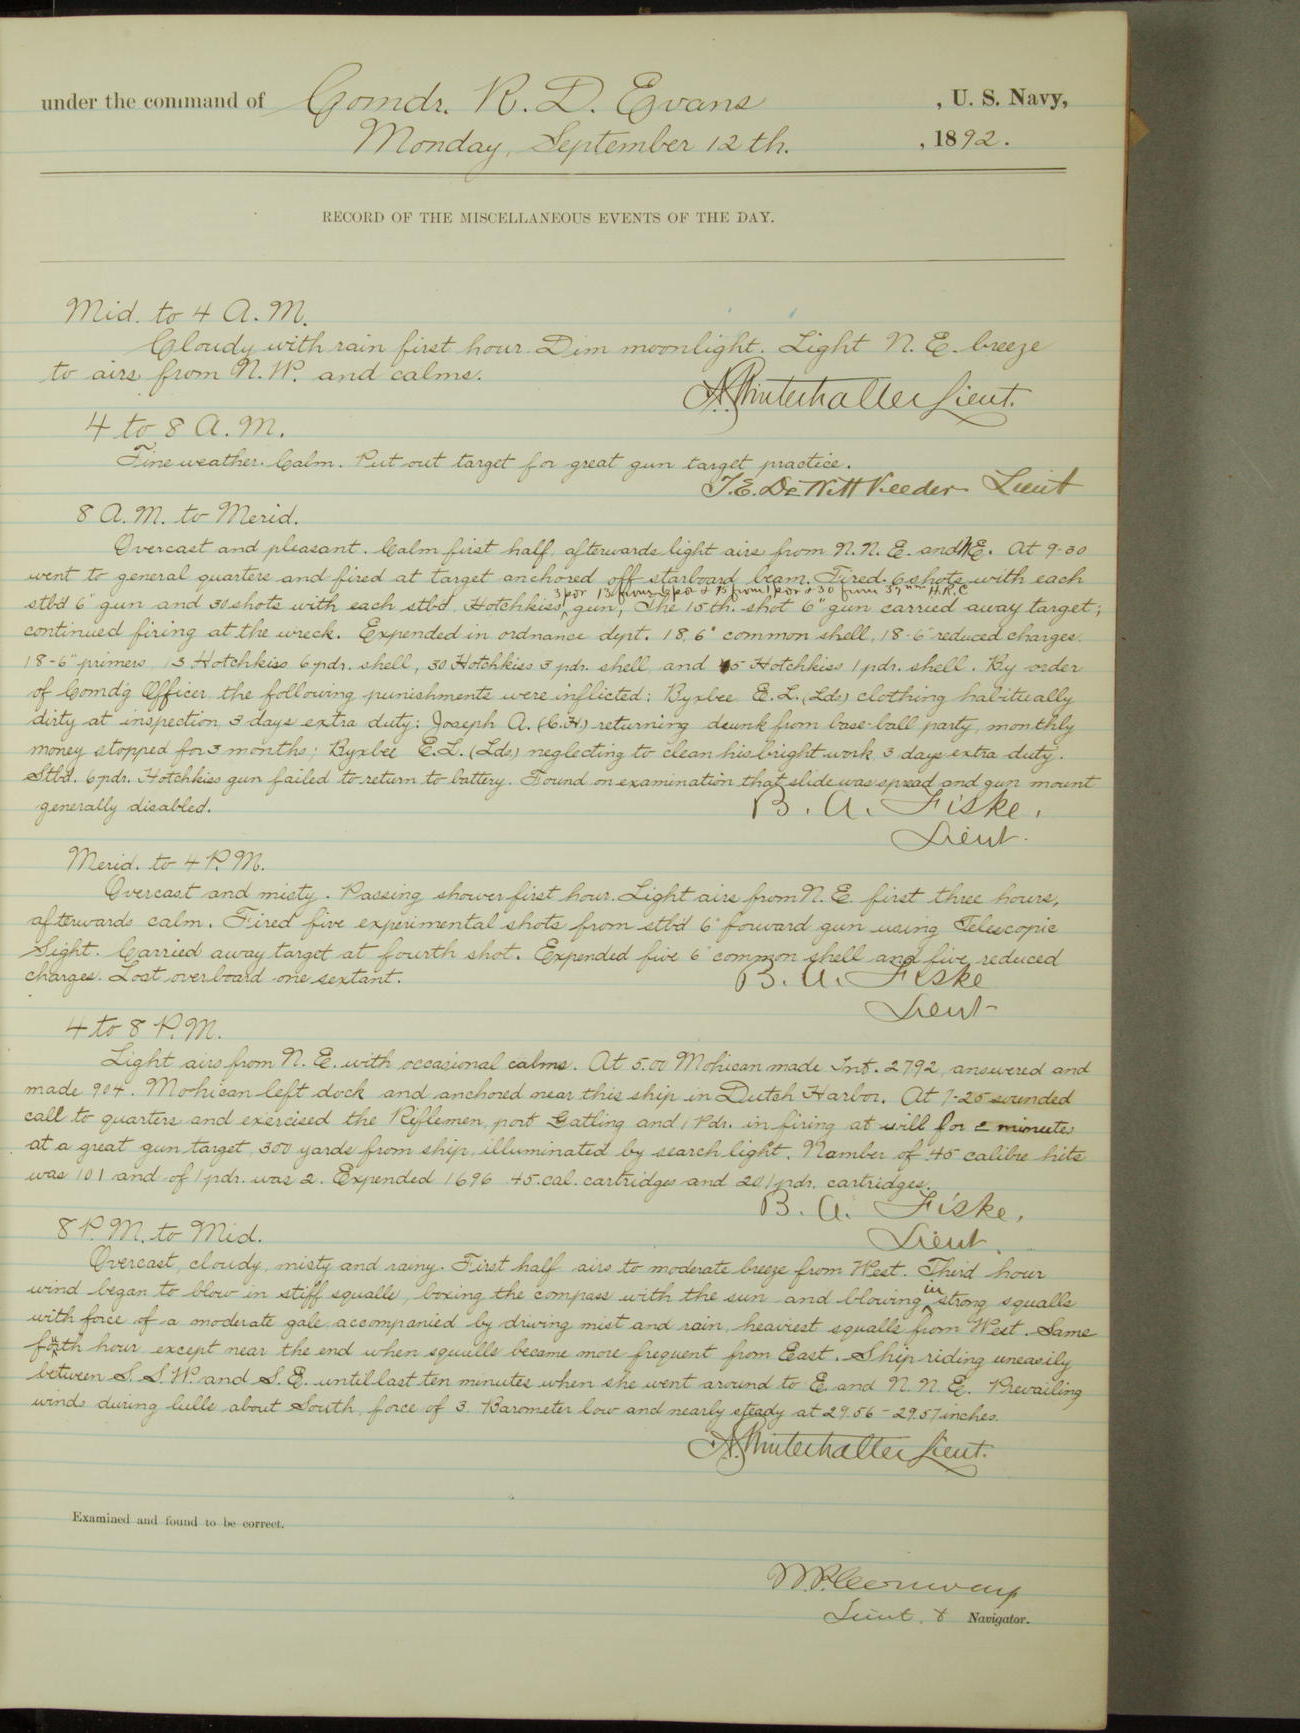 under the command of Comdr. R. D. Evans , U. S. Navy,
Monday, September 12th. , 1892.
RECORD OF THE MISCELLANEOUS EVENTS OF THE DAY.
Mid. to 4 A. M.
Cloudy with rain first hour. Dim moonlight. Light N. E. breeze
to airs from N. W. and calms.
A. G. Winterhalter Lieut.
4 to 8 A. M.
Fine weather. Calm. Put out target for great gun target practice.
T. E. De Witt Veeder Lieut
8 A. M. to Merid.
Overcast and pleasant. Calm first half, afterwards light airs from N. N. E. and N.E. At 9-30
went to general quarters and fired at target anchored off starboard beam. Fired 6 shots with each
3 pdr 13 from 6 pdr & 15 from 1 pdr & 30 from 37 mm H.R.C
stb'd 6" gun and 30 shots with each stb'd. Hotchkiss gun; The 15th. shot 6" gun carried away target;
continued firing at the wreck. Expended in ordnance dept. 18, 6" common shell, 18-6" reduced charges,
18-6" primers, 13 Hotchkiss 6 pdr. shell, 30 Hotchkiss 3 pdr. shell, and 45 Hotchkiss 1 pdr. shell. By order
of Comd'g Officer the following punishments were inflicted: Byxbee E. L. (Lds) clothing habitually
dirty at inspection 3 days extra duty: Joseph A. (C.H.) returning drunk from base-ball party, monthly
money stopped for 3 months; Byxbee E. L. (Lds) neglecting to clean his bright work 3 days extra duty.
Stb'd. 6 pdr. Hotchkiss gun failed to return to battery. Found on examination that slide was spread and gun mount
generally disabled.
B. A. Fiske,
Lieut.
Merid. to 4 P. M.
Overcast and misty. Passing shower first hour. Light airs from N. E. first three hours,
afterwards calm. Fired five experimental shots from stb'd 6" forward gun using Telescopic
Sight. Carried away target at fourth shot. Expended five 6" common shell and five reduced
charges. Lost overboard one sextant.
B. A. Fiske
Lieut
4 to 8 P. M.
Light airs from N. E. with occasional calms. At 5.00 Mohican made Int. 2792, answered and
made 904. Mohican left dock and anchored near this ship in Dutch Harbor. At 7-25 sounded
call to quarters and exercised the Riflemen, port Gatling and 1 Pdr. in firing at will for 2 minutes
at a great gun target, 300 yards from ship, illuminated by search light. Number of .45 calibre hits
was 101 and of 1 pdr. was 2. Expended 1696 .45. cal. cartridges and 20 1 pdr. cartridges.
B. A. Fiske,
Lieut.
8 P. M. to Mid.
Overcast, cloudy, misty and rainy. First half airs to moderate breeze from West. Third hour
in
wind began to blow in stiff squalls, boxing the compass with the sun and blowing strong squalls
with force of a moderate gale accompanied by driving mist and rain, heaviest squalls from West. Same
fourth hour except near the end when squalls became more frequent from East. Ship riding uneasily
between S. S. W. and S. E. until last ten minutes when she went around to E. and N. N. E. Prevailing
winds during lulls about South, force of 3. Barometer low and nearly steady at 29.56 - 29.57 inches.
A. G. Winterhalter Lieut.
Examined and found to be correct.
W. P. Conway
Lieut. & Navigator.